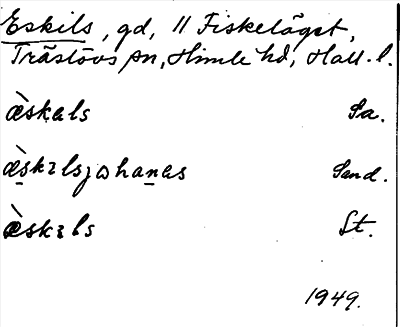 Eskils, gd, 11 Fiskeläget,
Träslövs sn, Himle hd, Hall. l.
æ̀skəls Sa.
æ̀skɪlsjohanəs Sand.
æ̀skɪls St.
1949.